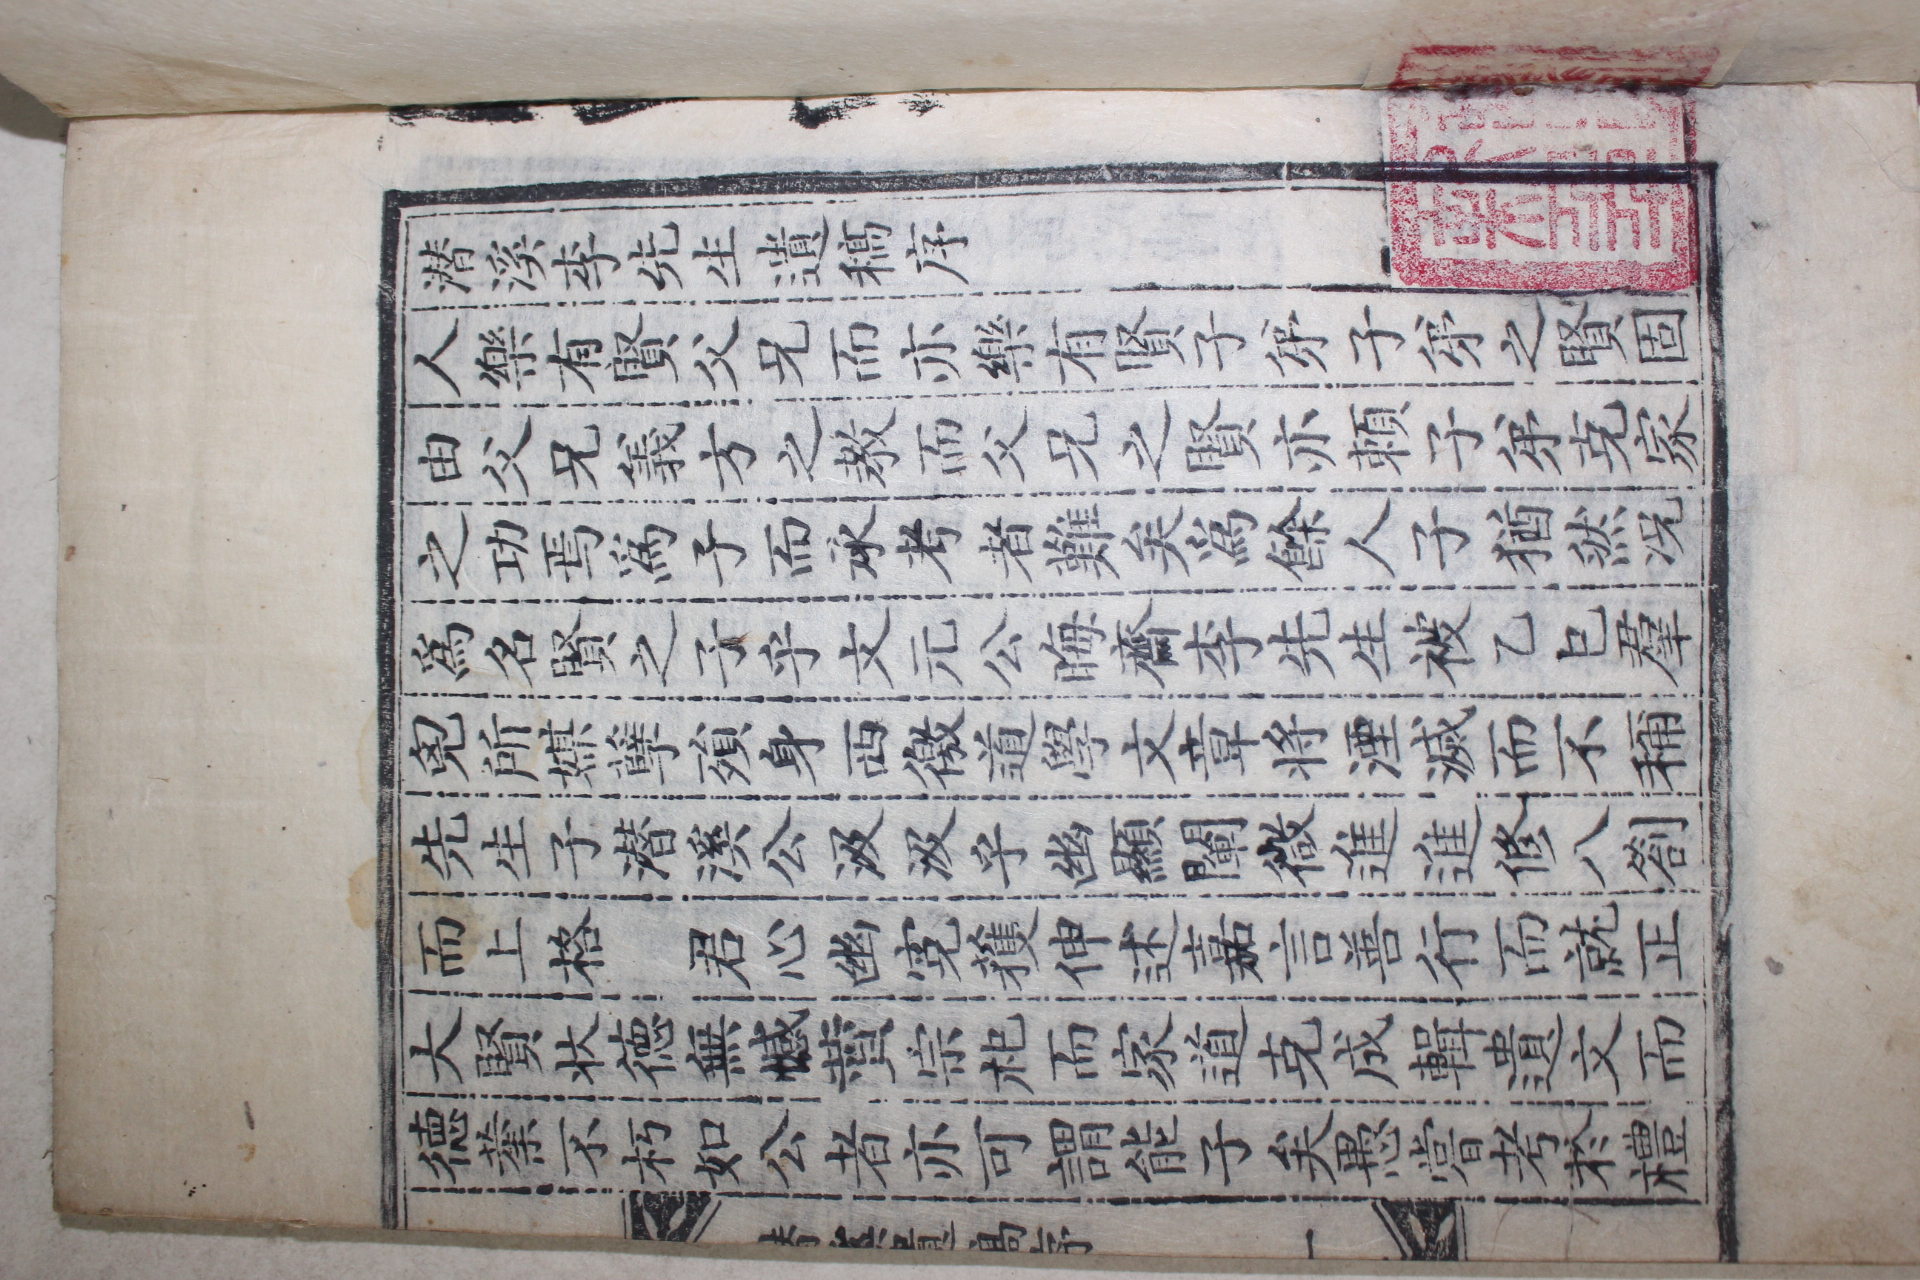 潜溪李先生遺稿序
人樂有賢父兄而亦樂有賢子弟子弟之賢固
由父兄義方之教而父兄之賢亦頼子弟克家
之功焉爲子而承考者難矣爲餘人子猶然况
爲名賢之子乎文元公晦齋李先生被乙巳羣
兇所媒孽殞身西徼道學文章將湮滅而不稱
先生子潜溪公汲汲乎幽顯闡微進進修八劄
而上格　君心幽寃獲伸述嘉言善行而就正
大賢状德無憾蕓宗祀而家道克成輯遺文而
德業不朽如公者亦可謂能子矣愚嘗考於禮
潜溪遺稿序　一